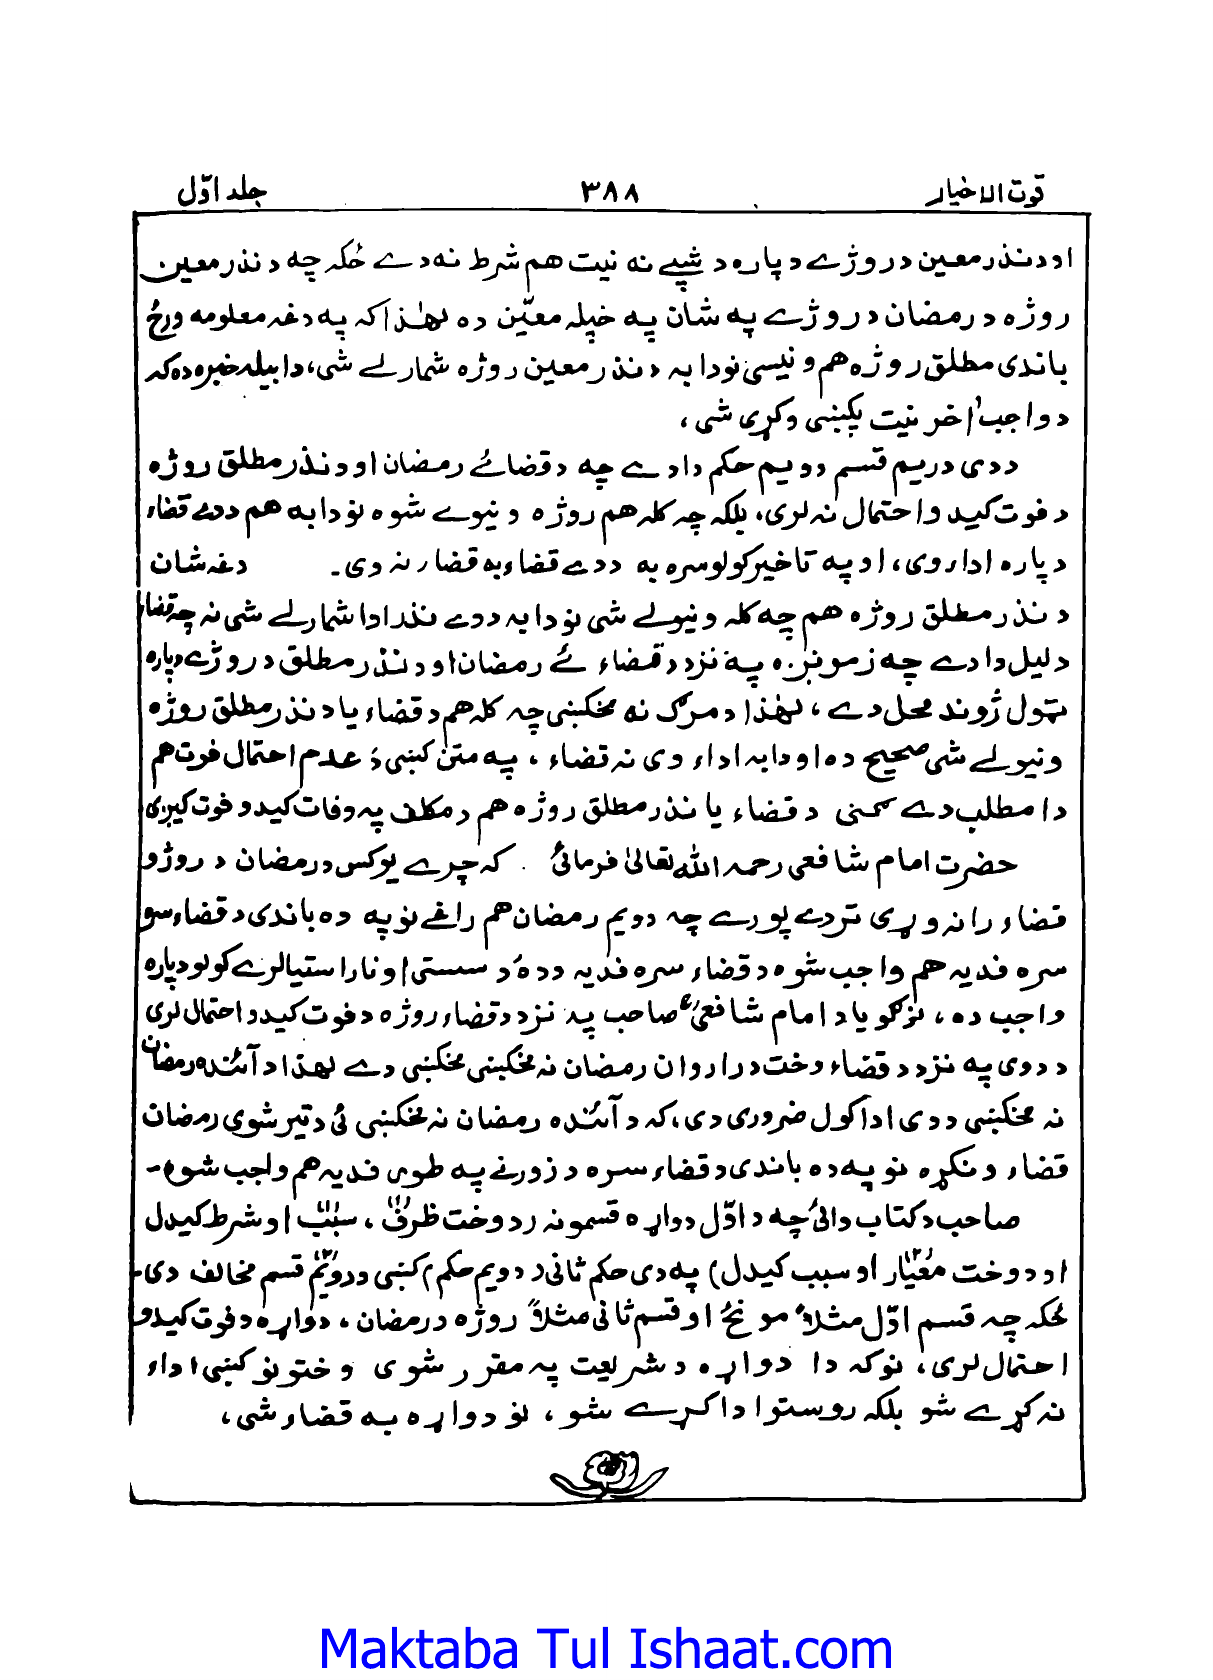 قوت الاخیار ۳۸۸ جلد اوّل
او د نذر معین د روژے د پاره د شپے نه نیت هم شرط نه دے ځکه چه د نذر معین
روژه د رمضان د روژے په شان په خپله معیّن ده لهٰذا که په دغه معلومه ورځ
باندی مطلق روژه هم ونیسی نو دا به د نذر معین روژه شمارلے شی، دا بیله خبره ده که
د واجب اٰخر نیت پکښی وکړی شی،
ددی دریم قسم دویم حکم دا دے چه د قضائے رمضان او د نذر مطلق روژه
د فوت کیدو احتمال نه لری، بلکه چه کله هم روژه ونیوے شوه نو دا به هم ددے قضاء
دپاره اداء وی، او په تاخیر کولو سره به ددے قضاء به قضاء نه وی۔ دغه شان
د نذر مطلق روژه هم چه کله ونیولے شی نو دا به ددے نذر ادا شمارلے شی نه چه قضاء
دلیل دا دے چه زمونږه په نزد د قضاء ئے رمضان او د نذر مطلق د روژے دپاره
ټول ژوند محل دے، لهٰذا د مرګ نه مخکښی چه کله هم د قضاء یا د نذر مطلق روژه
ونیولے شی صحیح ده او دا به اداء وی نه قضاء، په متن کښی دَ عدم احتمال فوت هم
دا مطلب دے ګنی د قضاء یا نذر مطلق روژه هم د مکلف په وفات کیدو فوت کیږی
حضرت امام شافعی رحمه الله تعالیٰ فرمائی که چرے یو کس د رمضان د روژو
قضاء را نه وړی تردے پورے چه دویم رمضان هم راغے نو په ده باندی د قضاء سو
سره فدیه هم واجب شوه د قضاء سره فدیه د ده دَ سستی او ناراستیا لرے کولو دپاره
واجب ده، نو ګویا د امام شافعیؒ صاحب په نزد د قضاء روژه د فوت کیدو احتمال لری
د دوی په نزد د قضاء وخت د راروان رمضان نه مخکښی مخکښی دے لهذا د آئنده رمضان
نه مخکښی د دی ادا کول ضروری دی، که د آئنده رمضان نه مخکښی ئی د تیر شوی رمضان
قضاء ونکړه نو په ده باندی د قضاء سره د زورنے په طور فدیه هم واجب شوه۔
صاحب د کتاب وائی چه د اوّل دواړه قسمونه (د وخت ظرف، سبب او شرط کیدل
او د وخت معیار او سبب کیدل) په دی حکم ثانی (دویم حکم) کښی د دریم قسم مخالف دی۔
ځکه چه قسم اوّل مثلاً مونځ او قسم ثانی مثلاً روژه د رمضان، دواړه د فوت کیدو
احتمال لری، نو که دا دواړه د شریعت په مقرر شوی وختونو کښی اداء
نه کړے شو بلکه روستو ادا کړے شو، نو دواړه به قضاء شی،
Maktaba Tul Ishaat.com